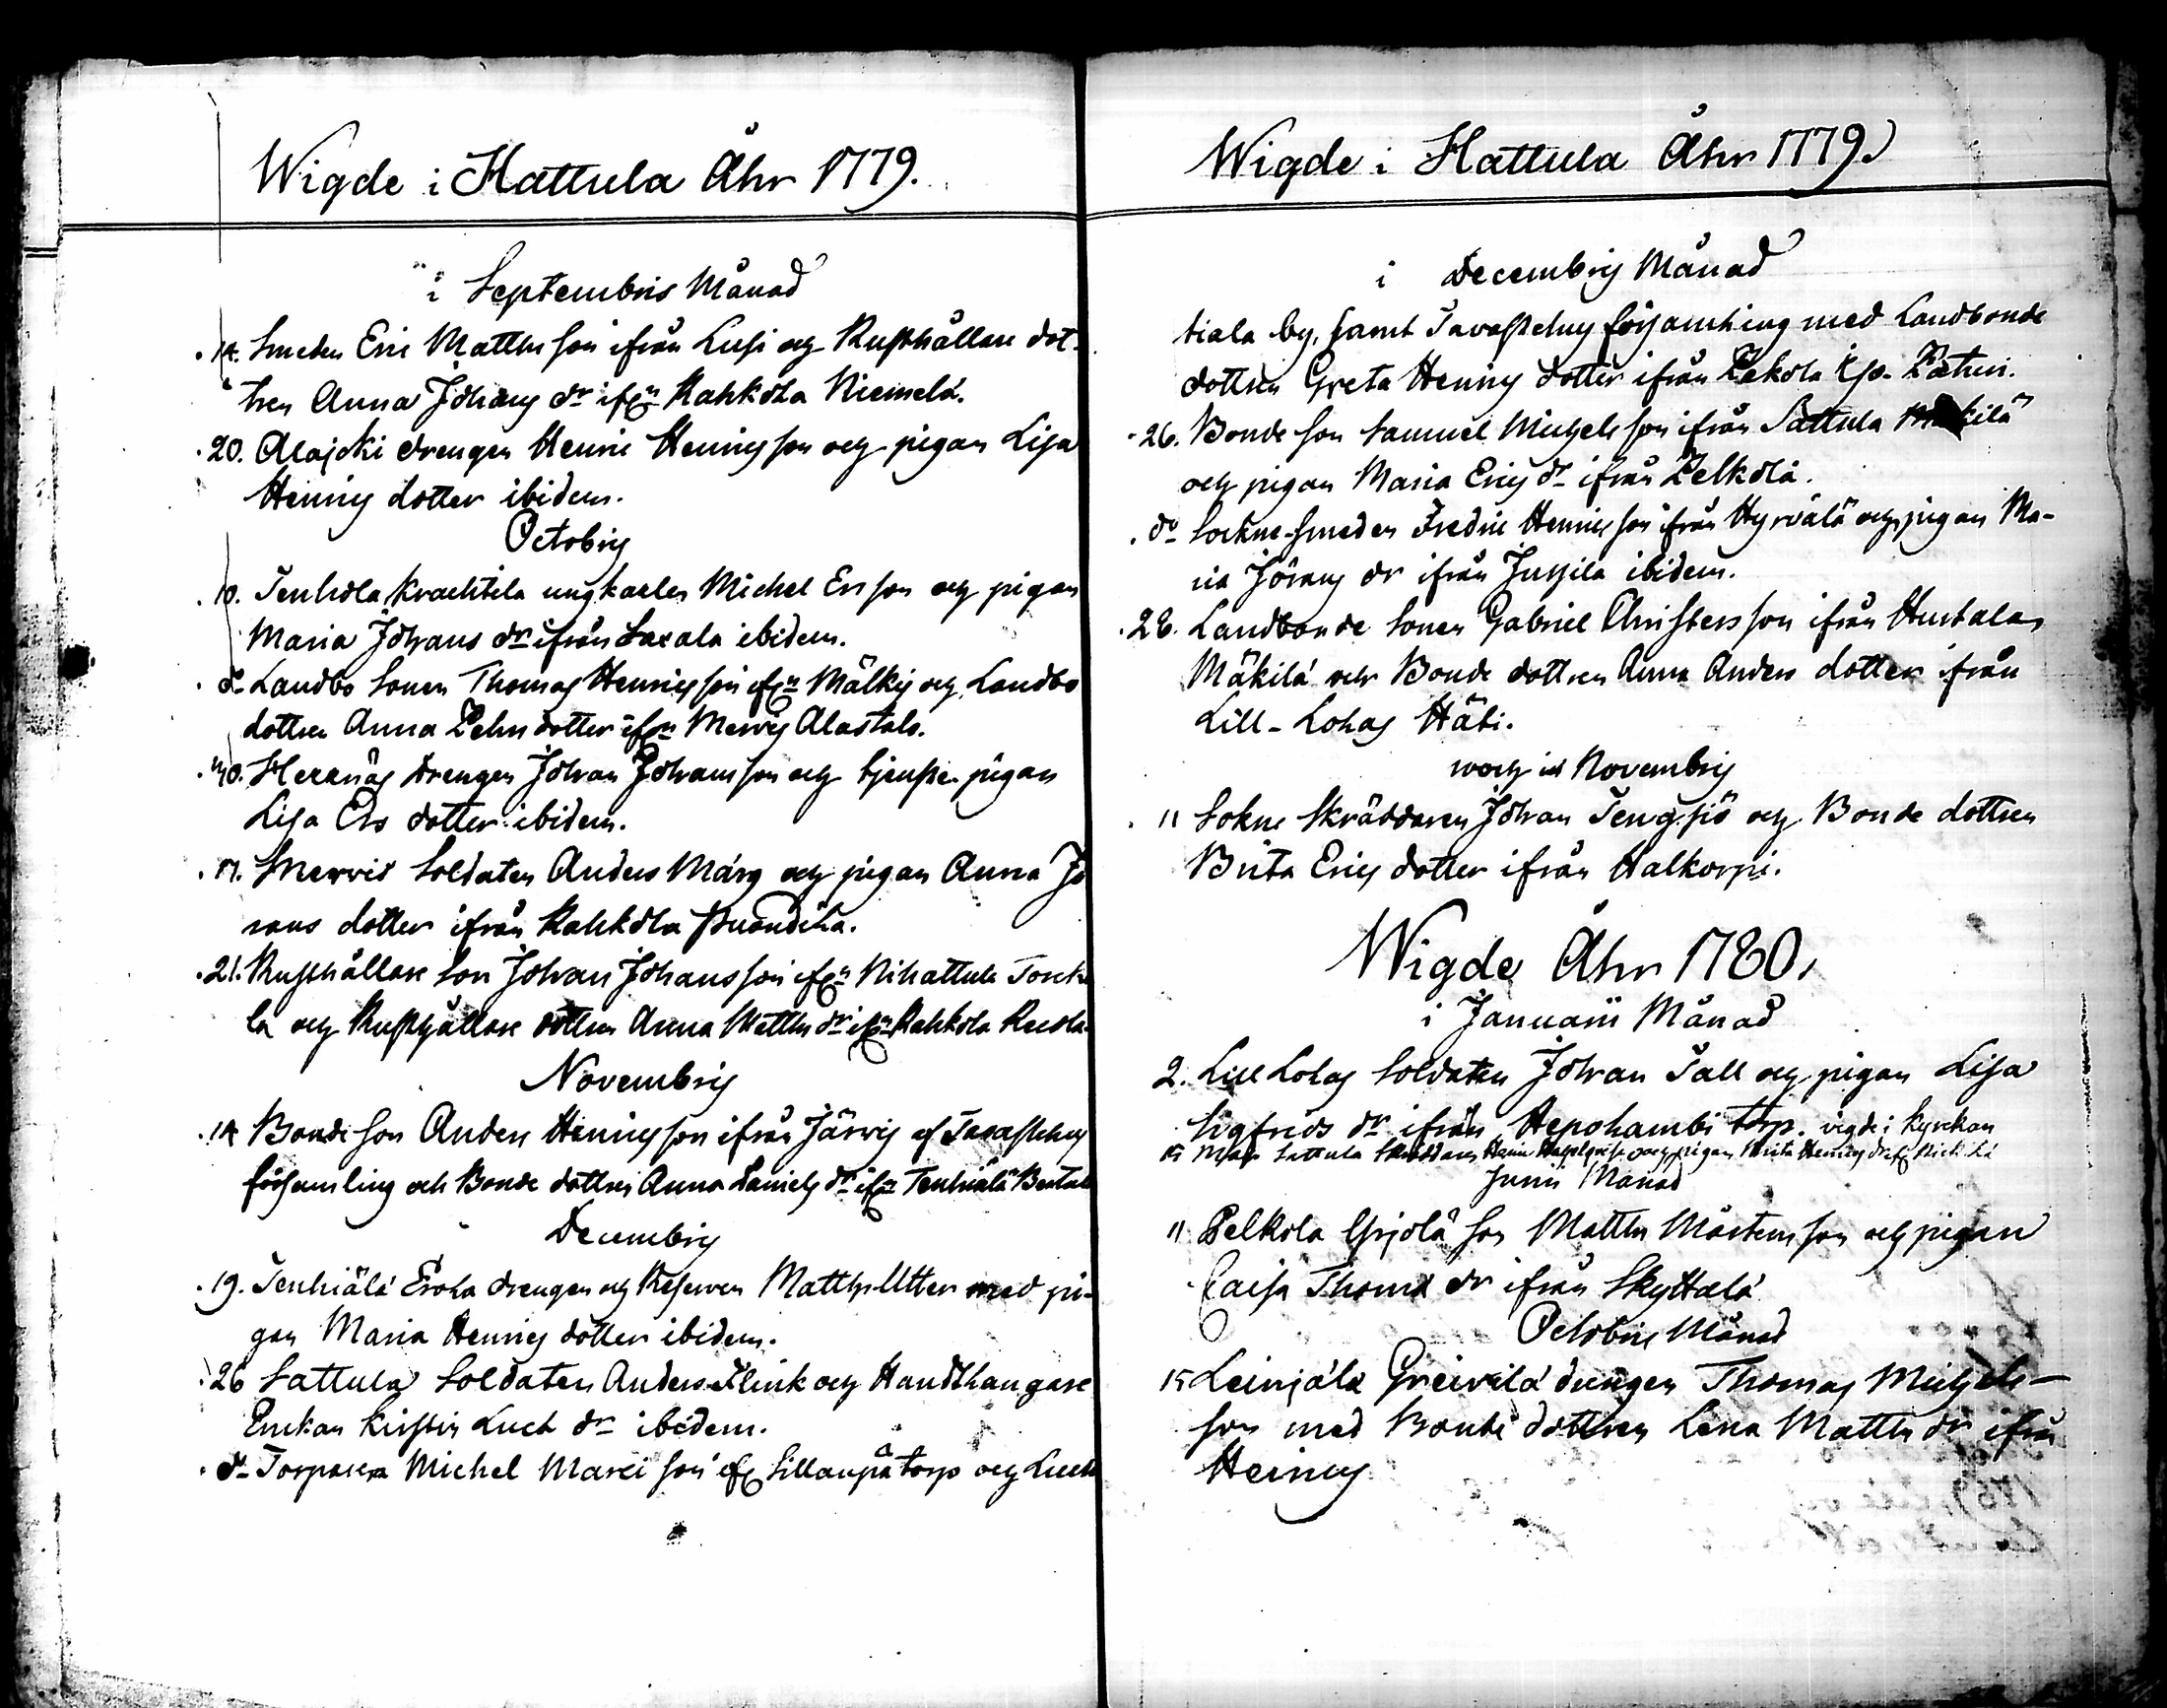 Wigde i Hattula Åhr 1779.
i Septembris Månad
14. Smeden Eric Matths son ifrån Lusi och Rusthållare dot-
tren Anna Johans dr ifrn Rahkola Niemelä.
20. Alajoki drengen Henric Henrics son och pigan Lisa
Henrics dotter ibidem.
Octobris
10. Tenhola Krachtila ungkarlen Michel Ersson och pigan
Maria Johans dr ifrån Saxala ibidem.
do Landbo Sonen Thomas Henrics son ifrn Mälkis och Landbo
dottren Anna dotter ifrn Mervis Alastalo.
Herrnäs drengen Johan Johans son och tjenste pigan
Lisa Ers dotter ibidem.
17. Mervis Soldaten Anders Märg och pigan Anna Jo
rans dotter ifrån Rahkola
21. Rusthållare Son Johan Johans son ifrn Nihattula Tonte
la och Rusthållare dottren Anna Matths dr ifrn Rahkola
Novembris
14 Bonde son Anders Henrics son ifrån Järvis af Tavastehus
församling och Bonde dottren Anna Daniels dr ifrn Tenhiälä
Decembris
19. Tenhiälä Erola drengen och Reserven Matths Utter med pi-
gan Maria Henrics dotter ibidem.
26 Sattula Soldaten Anders Flink och Handthangare
Enkan Kirstin Luct dr ibidem.
do Torparen Michel Marci son ifr Sillanpä torp och
Wigde i Hattula Åhr 1779.
i Decembris Månad
tiala by, samt Tavastehus församling med Landbonde
dottren Greta Henrics dotter ifrån
26. Bonde son Samuel Michels son ifrån Sattula Mäkilä
och pigan Maria Erics dr ifrån Pelkola.
do Sockne-smeden Fredric Henrics son ifrån Hyrvälä och pigan Ma-
ria Jörans dr ifrån Jussila ibidem.
28. Landbonde Sonen Gabriel Christers son ifrån Hurtala
Mäkilä och Bonde dottren Anna Anders dotter ifrån
Lill-Lohas Häti.
Novembris
11 Sokne Skräddaren Johan Tengsiö och Bonde dottren
Brita Erics dotter ifrån Halkorpi.
Wigde Åhr 1780.
i Januarii Månad
2. Lill Lohas Soldaten Johan Tall och pigan Lisa
Sigfrids dr ifrån torp. vigde i kyrckan
Sattula Skräddaren Henric och pigan Brita Henrics dr ifr
Junii Månad
11 Pelkola Yrjölä son Matths Mårtens son och pigan
Caisa Thomæ dr ifrån Skyttälä
Octobris Månad
15 Leiniälä Greivilä drengen Thomas Michels-
son med Bonde dottren Lena Matths dr ifrån
Heinus